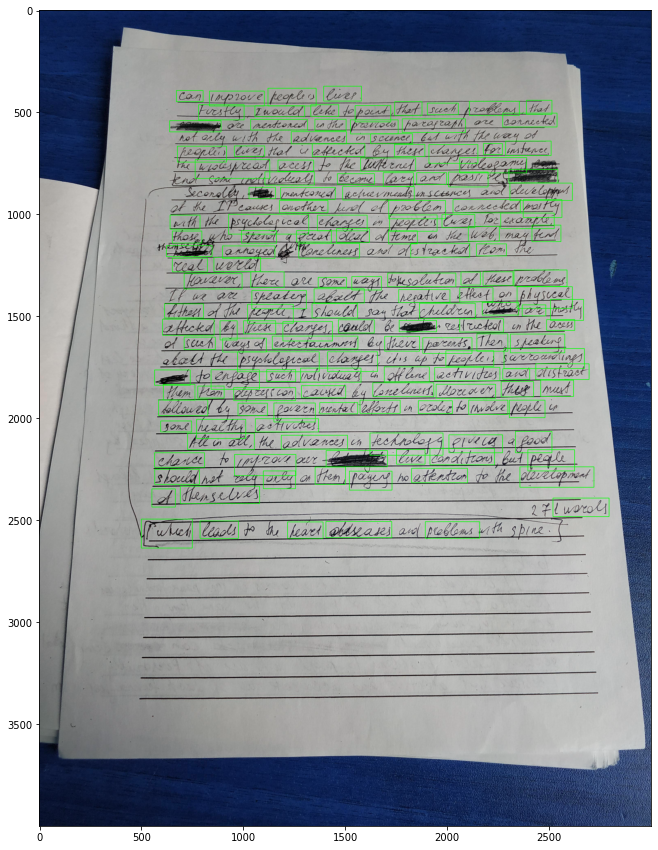 can improve people's lives
Firstly, I would like to point that such problems that
are mentioned in the previous paragraph, are connected
not only with the advances in science, but with the way of
people's lives that is affected by these changes. For instance,
the widespread access to the Internet and videogame
tend some individuals to become lazy and passive
Secondly, mentioned achievements in sciences and development
of the IT causes another kind of problem connected mostly
with the psychological changes in people's lives. For example,
those who spend a great deal of time in the web, may feel
themselves annoyed with loneliness and distracted from the
real world.
However, there are some ways to resolution of these problems
If we are speaking about the negative effect on physical
fitness of the people, I should say that children who are mostly
affected by these changes, could be restricted in the access
of such ways of entertainment by there parents. Then, speaking
about the psyhological changes, it is up to people's surroundings
to engage such individuals in offline activities and distract
them from depression caused by loneliness. Moreover, this must
followed by some governmental efforts in order to involve people in
some healthy activities
All in all, the advances in technology giving a good
chance to improve our live conditions, but people
should not rely only on them, paying no attention to the development
of themselves
271 words
which leads to the heart diseases and problems with spine.
0
500
1000
1500
2000
2500
3000
3500
0 500 1000 1500 2000 2500